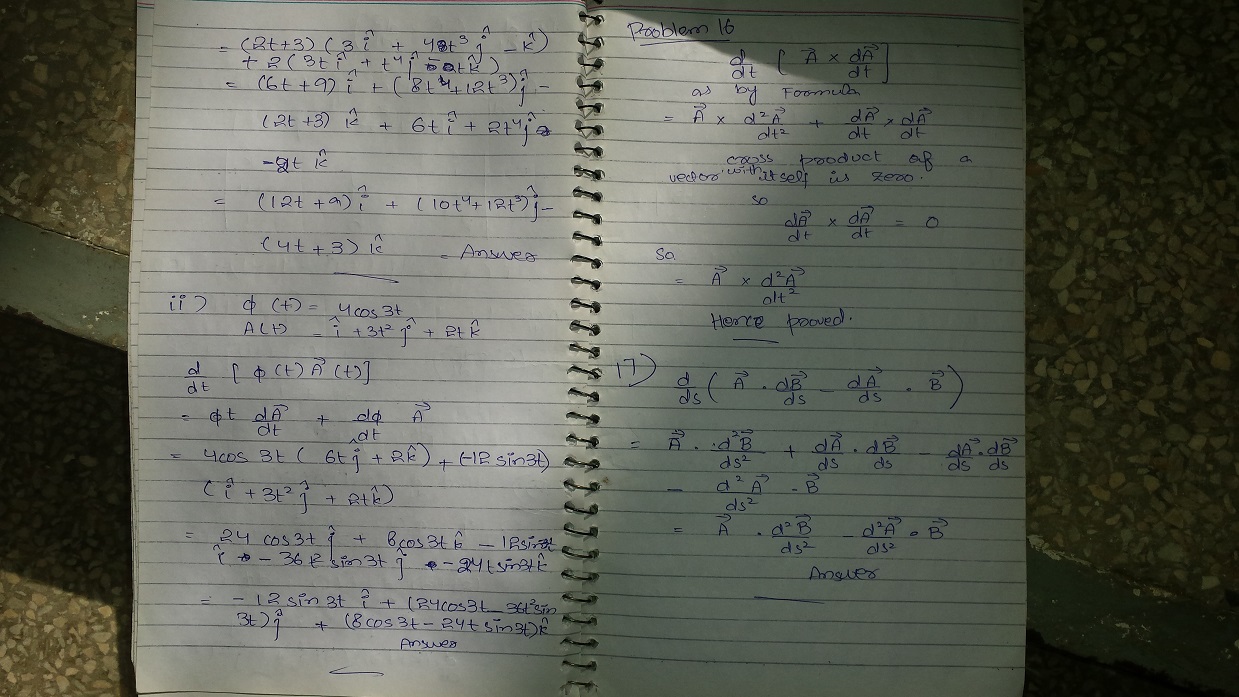 = (2t+3) (3 î + 4t³ ĵ - k̂)
+ 2(3t î + t⁴ ĵ - t k̂)
= (6t+9) î + (8t⁴+12t³) ĵ -
(2t+3) k̂ + 6t î + 2t⁴ ĵ
-2t k̂
= (12t+9) î + (10t⁴+12t³) ĵ -
(4t+3) k̂ = Answer
ii) ϕ(t) = 4cos3t
A(t) = î + 3t² ĵ + 2t k̂
d/dt [ϕ(t) A⃗(t)]
= ϕt dA⃗/dt + dϕ/dt A⃗
= 4cos 3t (6t ĵ + 2k̂) + (-12 sin3t)
(î + 3t² ĵ + 2t k̂)
= 24 cos3t ĵ + 8cos3t k̂ - 12sin3t
î - 36t sin3t ĵ - 24t sin3t k̂
= -12 sin 3t î + (24cos3t - 36t² sin
3t) ĵ + (8cos3t - 24t sin3t) k̂
Answer
Problem 16
d/dt [A⃗ × dA⃗/dt]
as by Formula
= A⃗ × d²A⃗/dt² + dA⃗/dt × dA⃗/dt
cross product of a
vector with itself is zero.
so
dA⃗/dt × dA⃗/dt = 0
So
= A⃗ × d²A⃗/dt²
Hence proved.
17) d/ds (A⃗ · dB⃗/ds - dA⃗/ds · B⃗)
= A⃗ · d²B⃗/ds² + dA⃗/ds · dB⃗/ds - dA⃗/ds · dB⃗/ds
- d²A⃗/ds² · B⃗
= A⃗ · d²B⃗/ds² - d²A⃗/ds² · B⃗
Answer